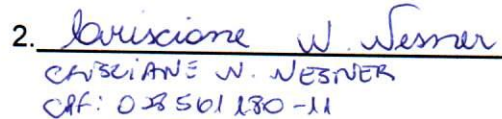 2. Carisciane W. Nesner
CRISCIANE W. NESNER
CPF: 028561180-11